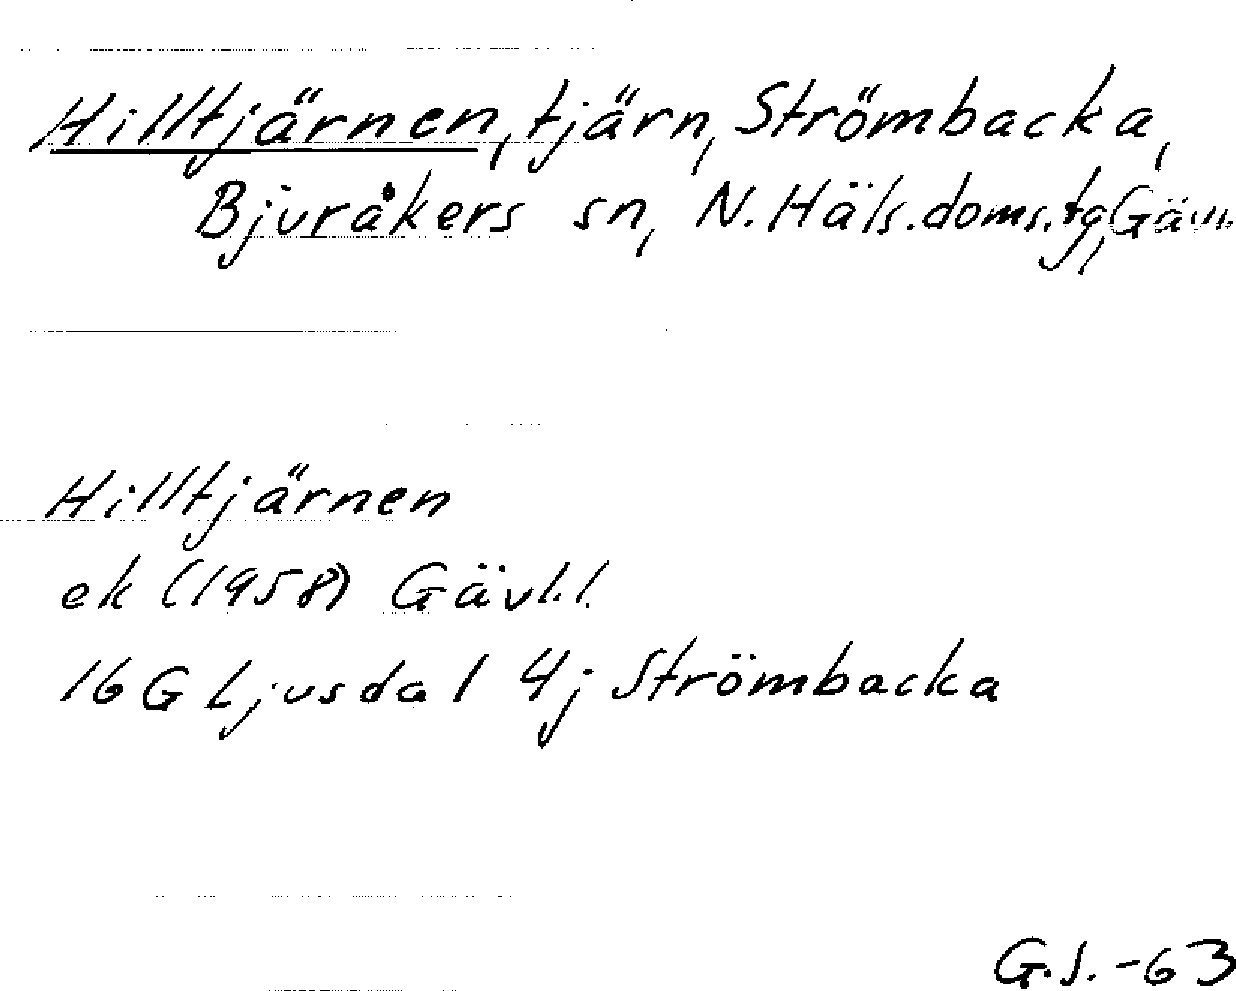 Hilltjärnen, tjärn, Strömbacka,
Bjuråkers sn, N. Häls. doms. tg, Gävl.
Hilltjärnen
ek (1958) Gävl.l.
16 G Ljusdal 4j Strömbacka
G.J. -63